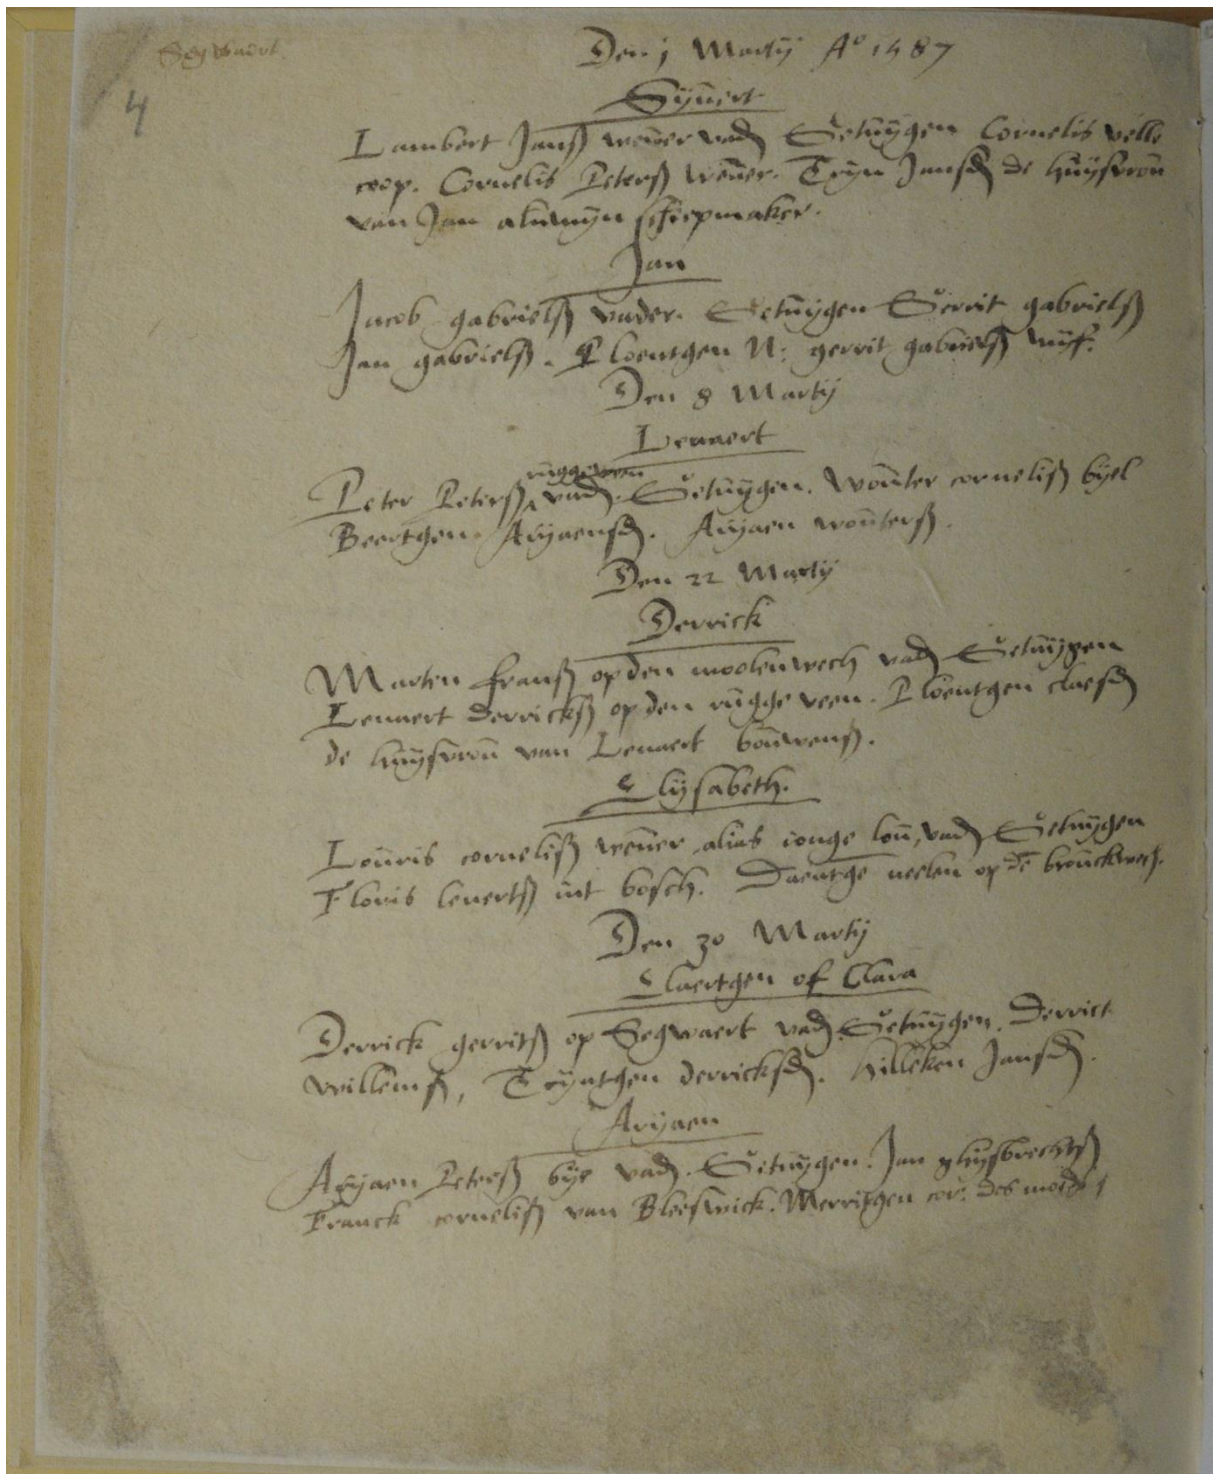 Segwaert.
Den 1 Martij Ao 1587
4
Symert
Lambert Jansß wever vadr Getuijgen Cornelis velle
coop. Cornelis Petersß wever. Trijn Jansdr de huijsvrou
van Jan aluwijn scheepmaker.
Jan
Jacob gabrielsß vader. Getuijgen Gerrit gabrielsß
Jan gabrielsß. Ploentgen N: gerrit gabrielsß wijf.
Den 8 Martij
Lenaert
ruggeveen
Peter Petersß vadr. Getuijgen. Wouter cornelisß bijl
Beertgen Arijaensdr. Arijaen woutersß.
Den 22 Martij
Derrick
Marten fransß op den moolenwech vadr Getuijgen
Lenaert derricksß op den rugge veen. Ploentgen claesdr
de huijsvrou van Lenaert bouwensß.
Elijsabeth.
Louris cornelisß wever alias ionge lou, vadr Getuijgen
Floris lenertsß int bosch. Daentge neelen op de brouckwech.
Den 30 Martij
Claertgen of Clara
Derrick gerritsß op Segwaert vadr Getuijgen. Derrick
willemsß, Trijntgen derricksdr. hilleken Jansdr.
Arijaen
Arijaen Petersß bije vadr. Getuijgen. Jan ghijsbrechtsß
Franck cornelisß van Bleeswick. Merritgen cor: des